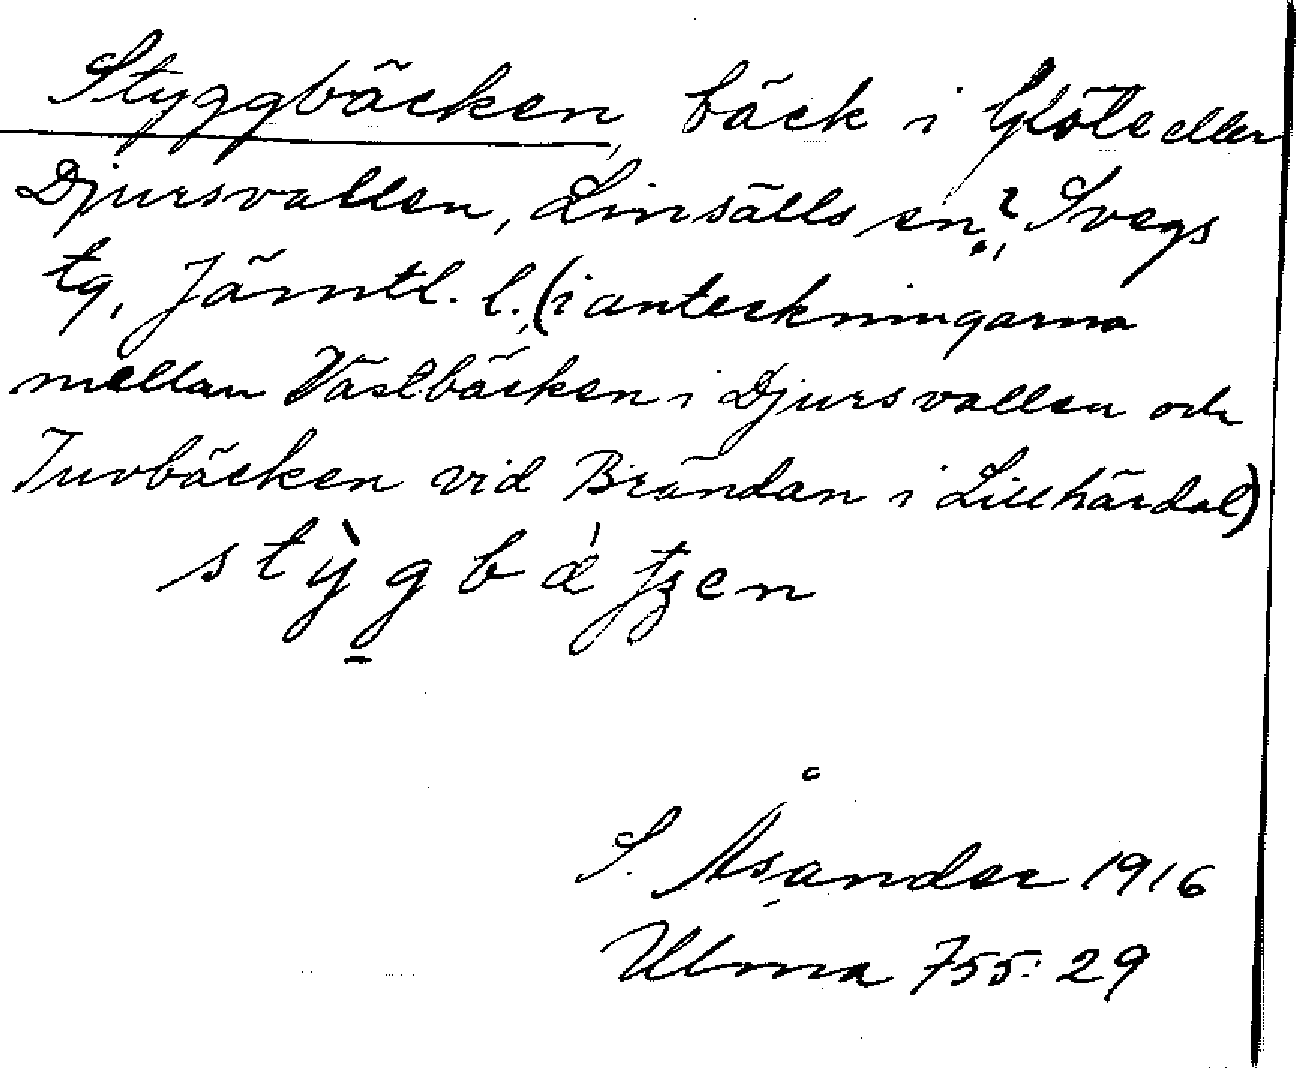 Styggbäcken, bäck i Glöte eller
Djursvallen, Linsälls sn?, Svegs
tg, Jämtl. l. (i anteckningarna
mellan Västbäcken i Djursvallen och
Tuvbäcken vid Brändan i Lillhärdal)
stỳgbæ̀ʈʂen
S. Åsander 1916
Ulma 755: 29